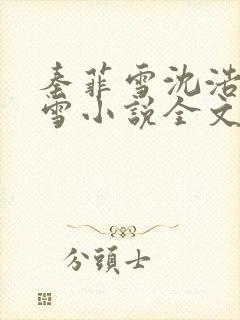 秦菲雪沈浩
雪小説全文
分頭士